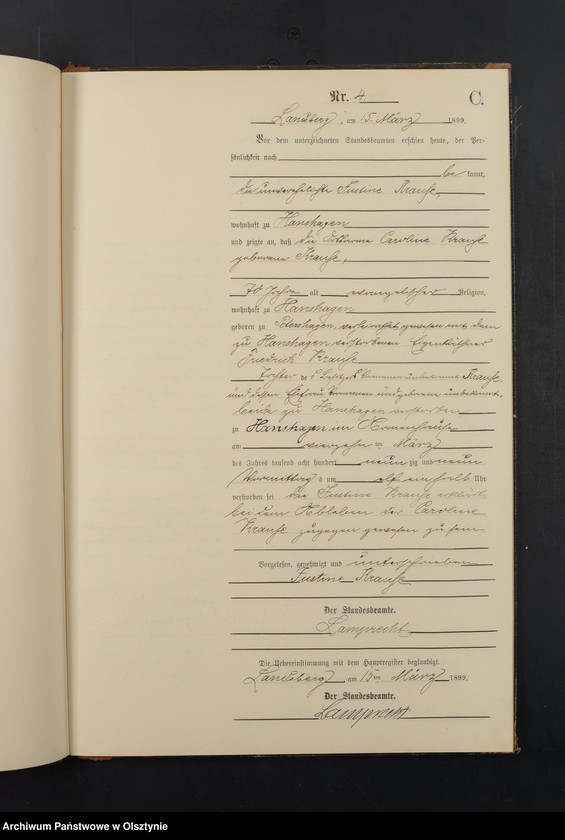 Nr. 4
C.
Landsberg, am 15. März 1899.
Vor dem unterzeichneten Standesbeamten erschien heute, der Per-
sönlichkeit nach
be kannt,
die unverehelichte Justine Krause,
wohnhaft zu Hanshagen
und zeigte an, daß die Caroline Krause
geborene Krause,
70 Jahre alt evangelischer Religion,
wohnhaft zu Hanshagen
geboren zu Petershagen, verheirathet gewesen mit dem
zu Hanshagen verstorbenen Eigenkäthner
Friedrich Krause
Tochter des Vornamen unbekannt Krause
und dessen Ehefrau Vornamen und geborene unbekannt,
beide zu Hanshagen verstorben
zu Hanshagen im Armenhause
am vierzehnten März
des Jahres tausend acht hundert neun zig und neun
Vormittags um elf einhalb Uhr
verstorben sei die Justine Krause erklärte
bei dem Ableben der Caroline
Krause zugegen gewesen zu sein
Vorgelesen, genehmigt und unterschrieben
Justine Krause
Der Standesbeamte.
Lamprecht
Die Uebereinstimmung mit dem Hauptregister beglaubigt.
Landsberg am 15ten März 1899.
Der Standesbeamte.
Lamprecht
Archiwum Państwowe w Olsztynie